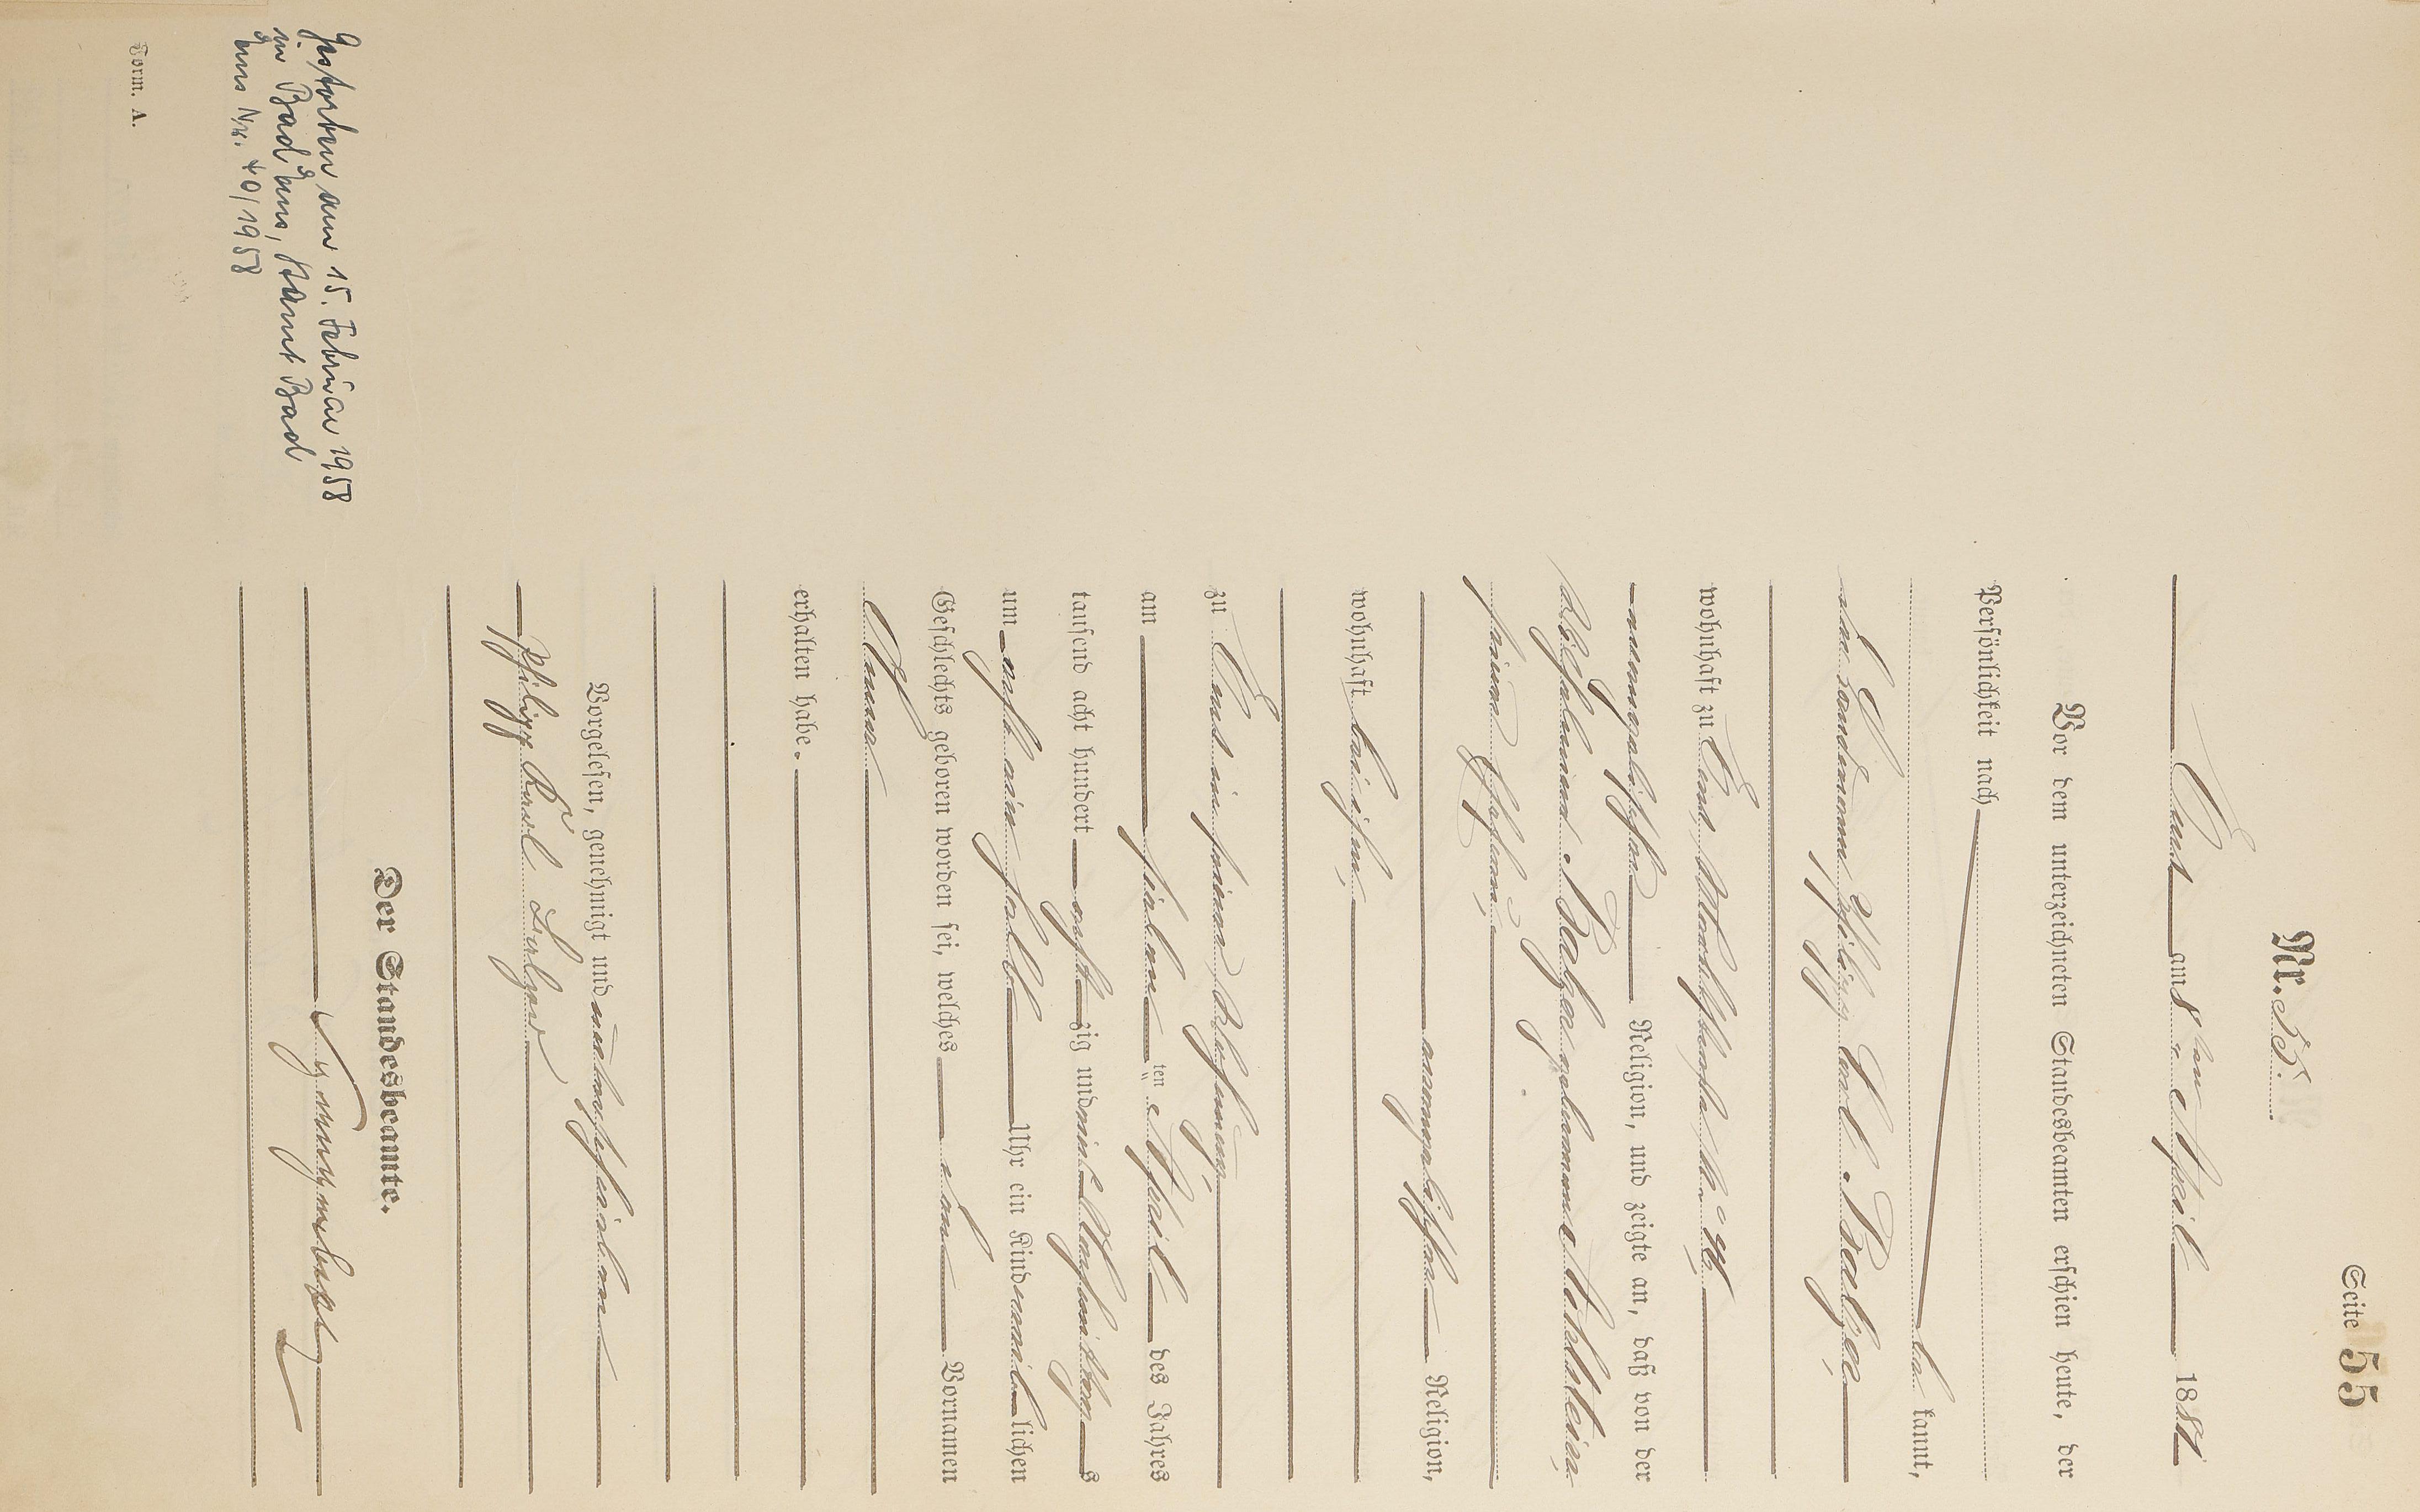 Seite 55
Nr. 55.
Ems am 8ten April 1881
Vor dem unterzeichneten Standesbeamten erschien heute, der
Persönlichkeit nach
be kannt,
der Philipp Carl Balzer,
wohnhaft zu Ems,
evangelischer Religion, und zeigte an, daß von der
Balzer geborenen
seiner Ehefrau,
evangelischer Religion,
wohnhaft bei ihm,
zu Ems in seiner Wohnung,
am sieben ten April des Jahres
tausend acht hundert acht zig und eins Nachmittags
um acht ein halb Uhr ein Kind weiblichen
Geschlechts geboren worden sei, welches den Vornamen
Anna
erhalten habe.
Vorgelesen, genehmigt und unterschrieben
Philipp Karl Balzer
Der Standesbeamte.
Gestorben am 15. Februar 1958
in Bad Ems, Stamt Bad
Ems Nr. 40/1958
Form. A.